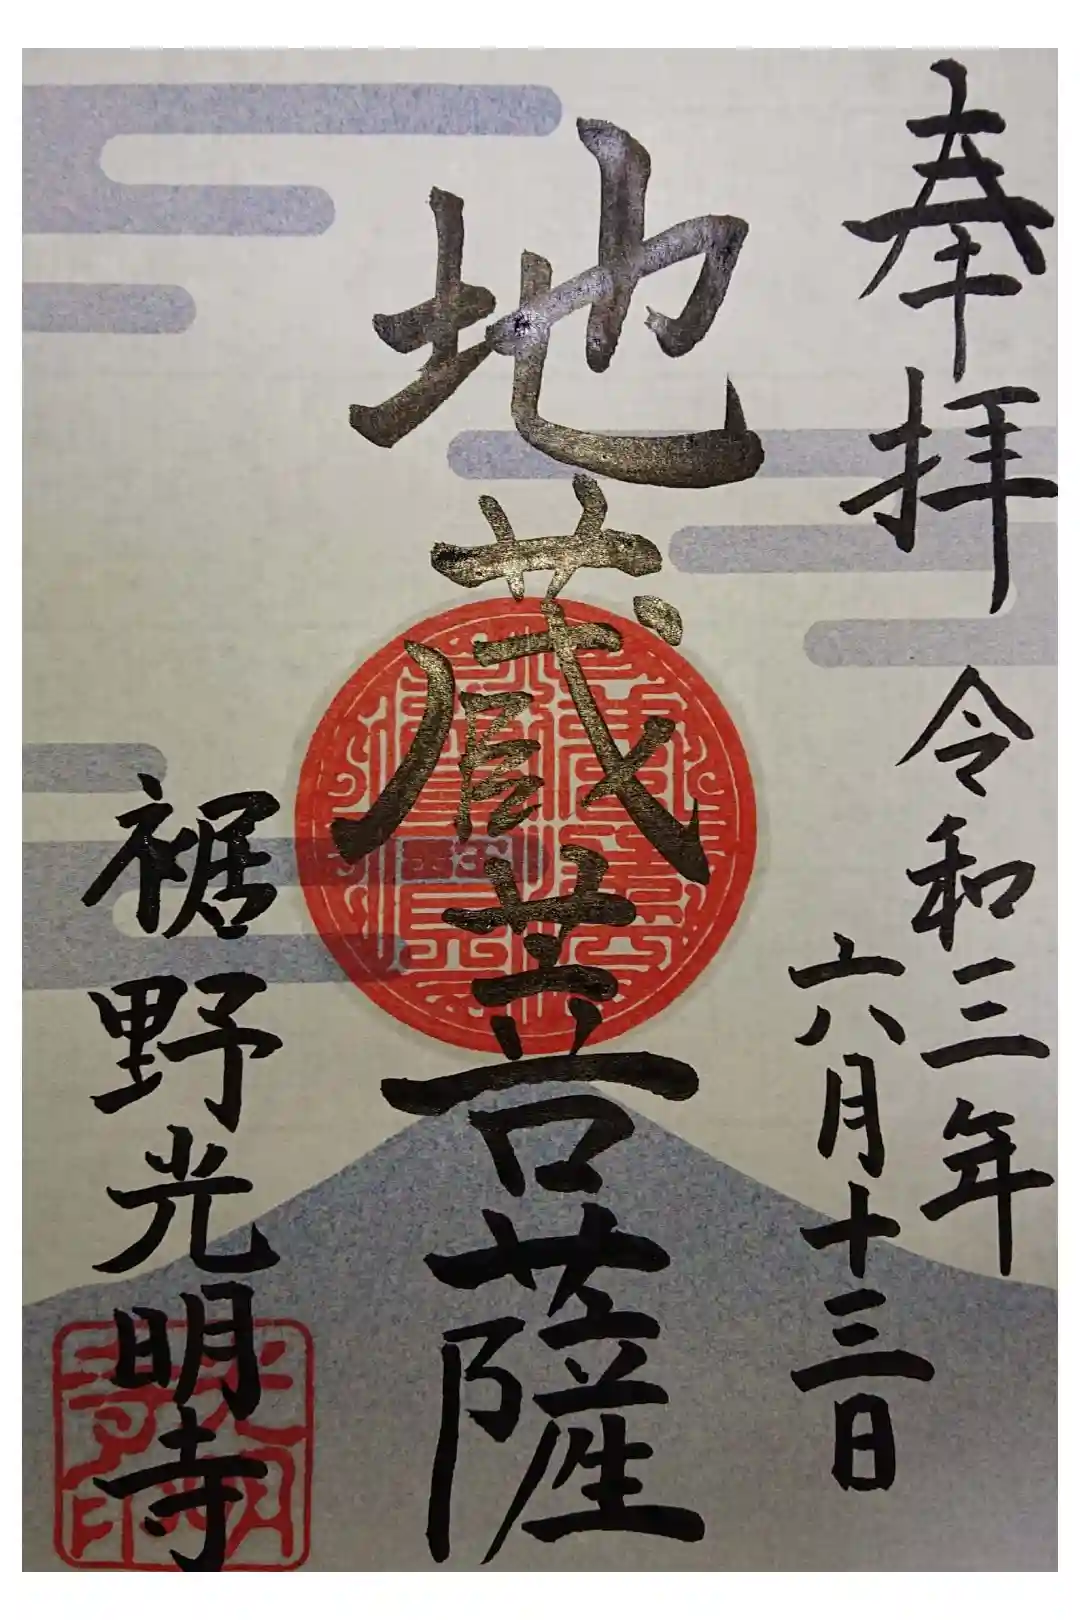 奉拝
令和三年
六月十三日
地蔵菩薩
裾野光明寺
光明
寺印